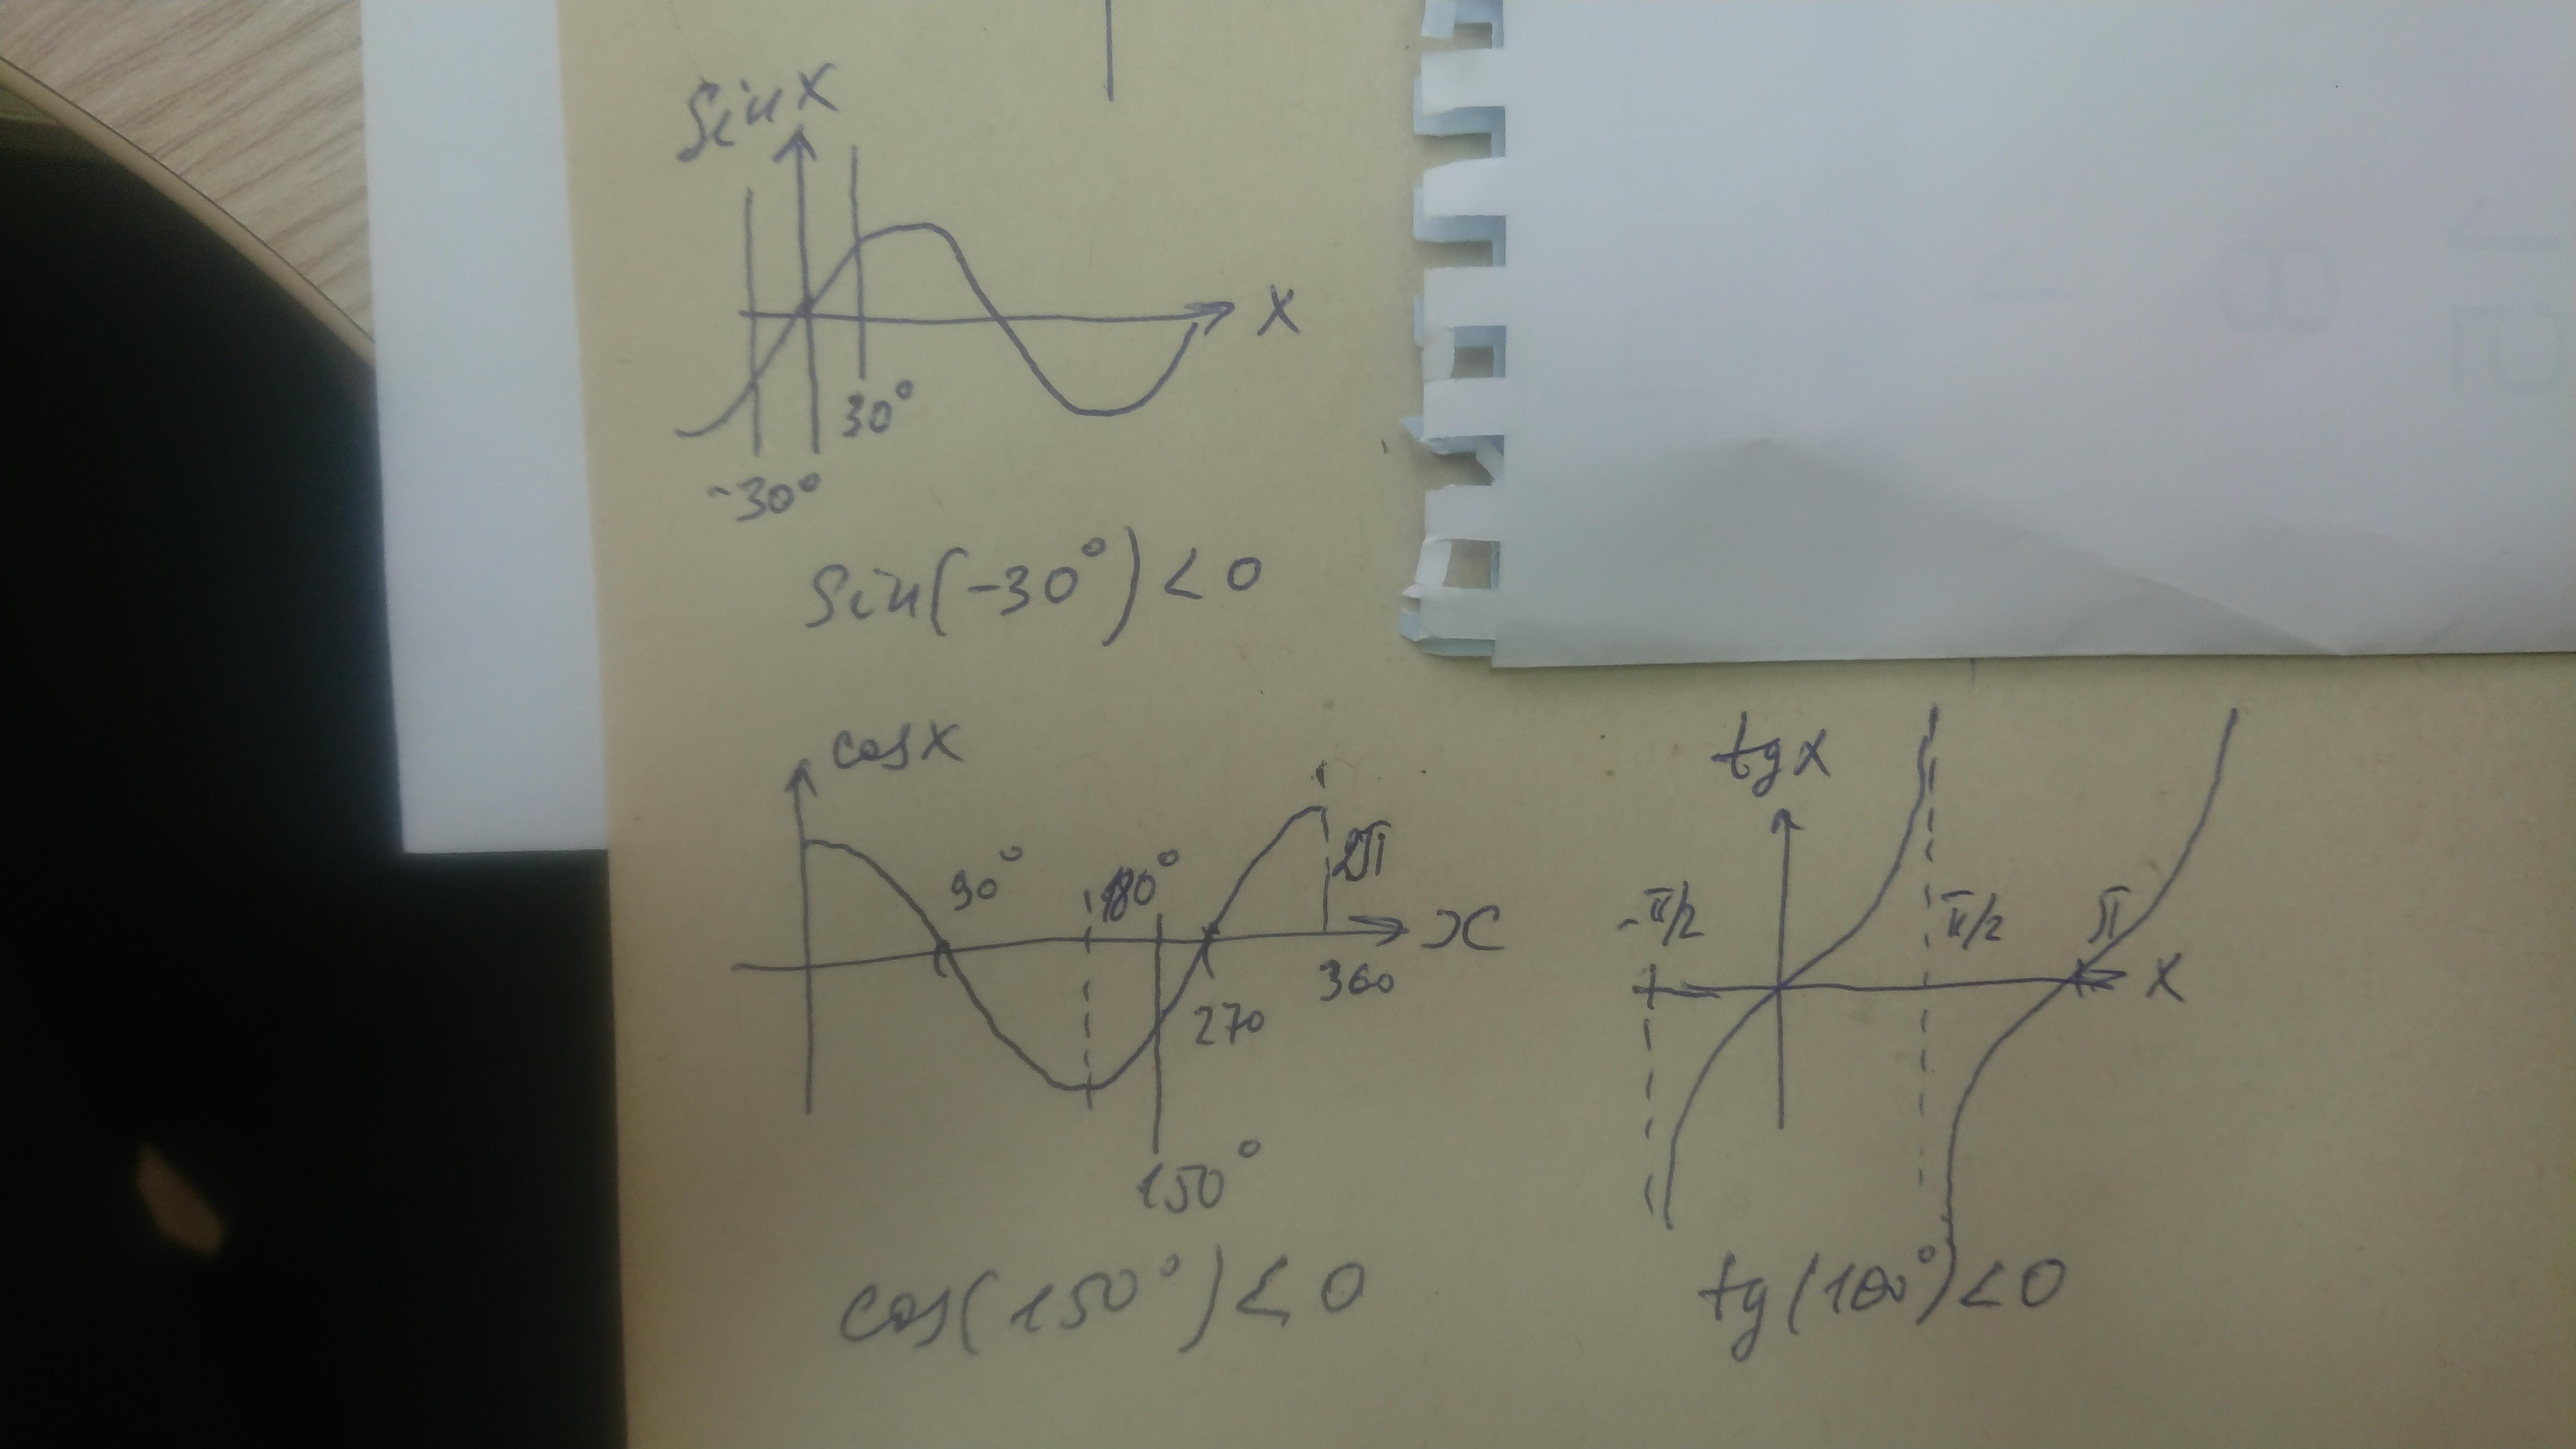 sin x
x
30°
-30°
sin(-30°) < 0
cos x
90°
180°
2π
x
360
270
150°
cos(150°) < 0
tg x
-π/2
π/2
π
x
tg(100°) < 0